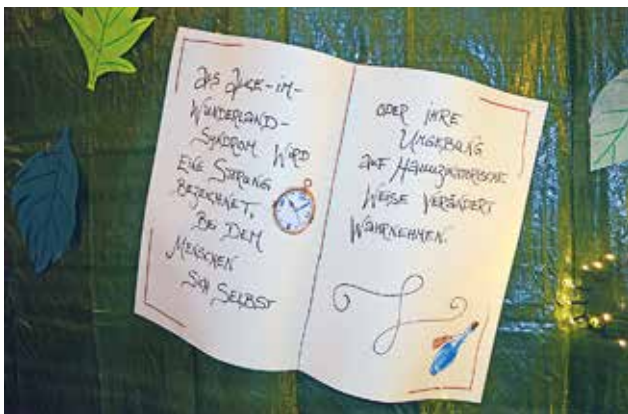 Als Alice-im-
Wunderland-
Syndrom wird
eine Störung
bezeichnet,
bei dem
Menschen
sich selbst
oder ihre
Umgebung
auf halluzinatorische
Weise verändert
wahrnehmen.